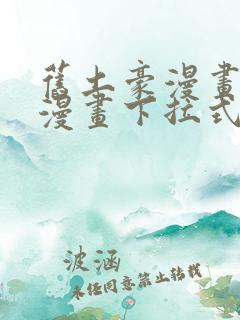 舊土豪漫畫
漫畫下拉式
波涵
未经同意禁止转载